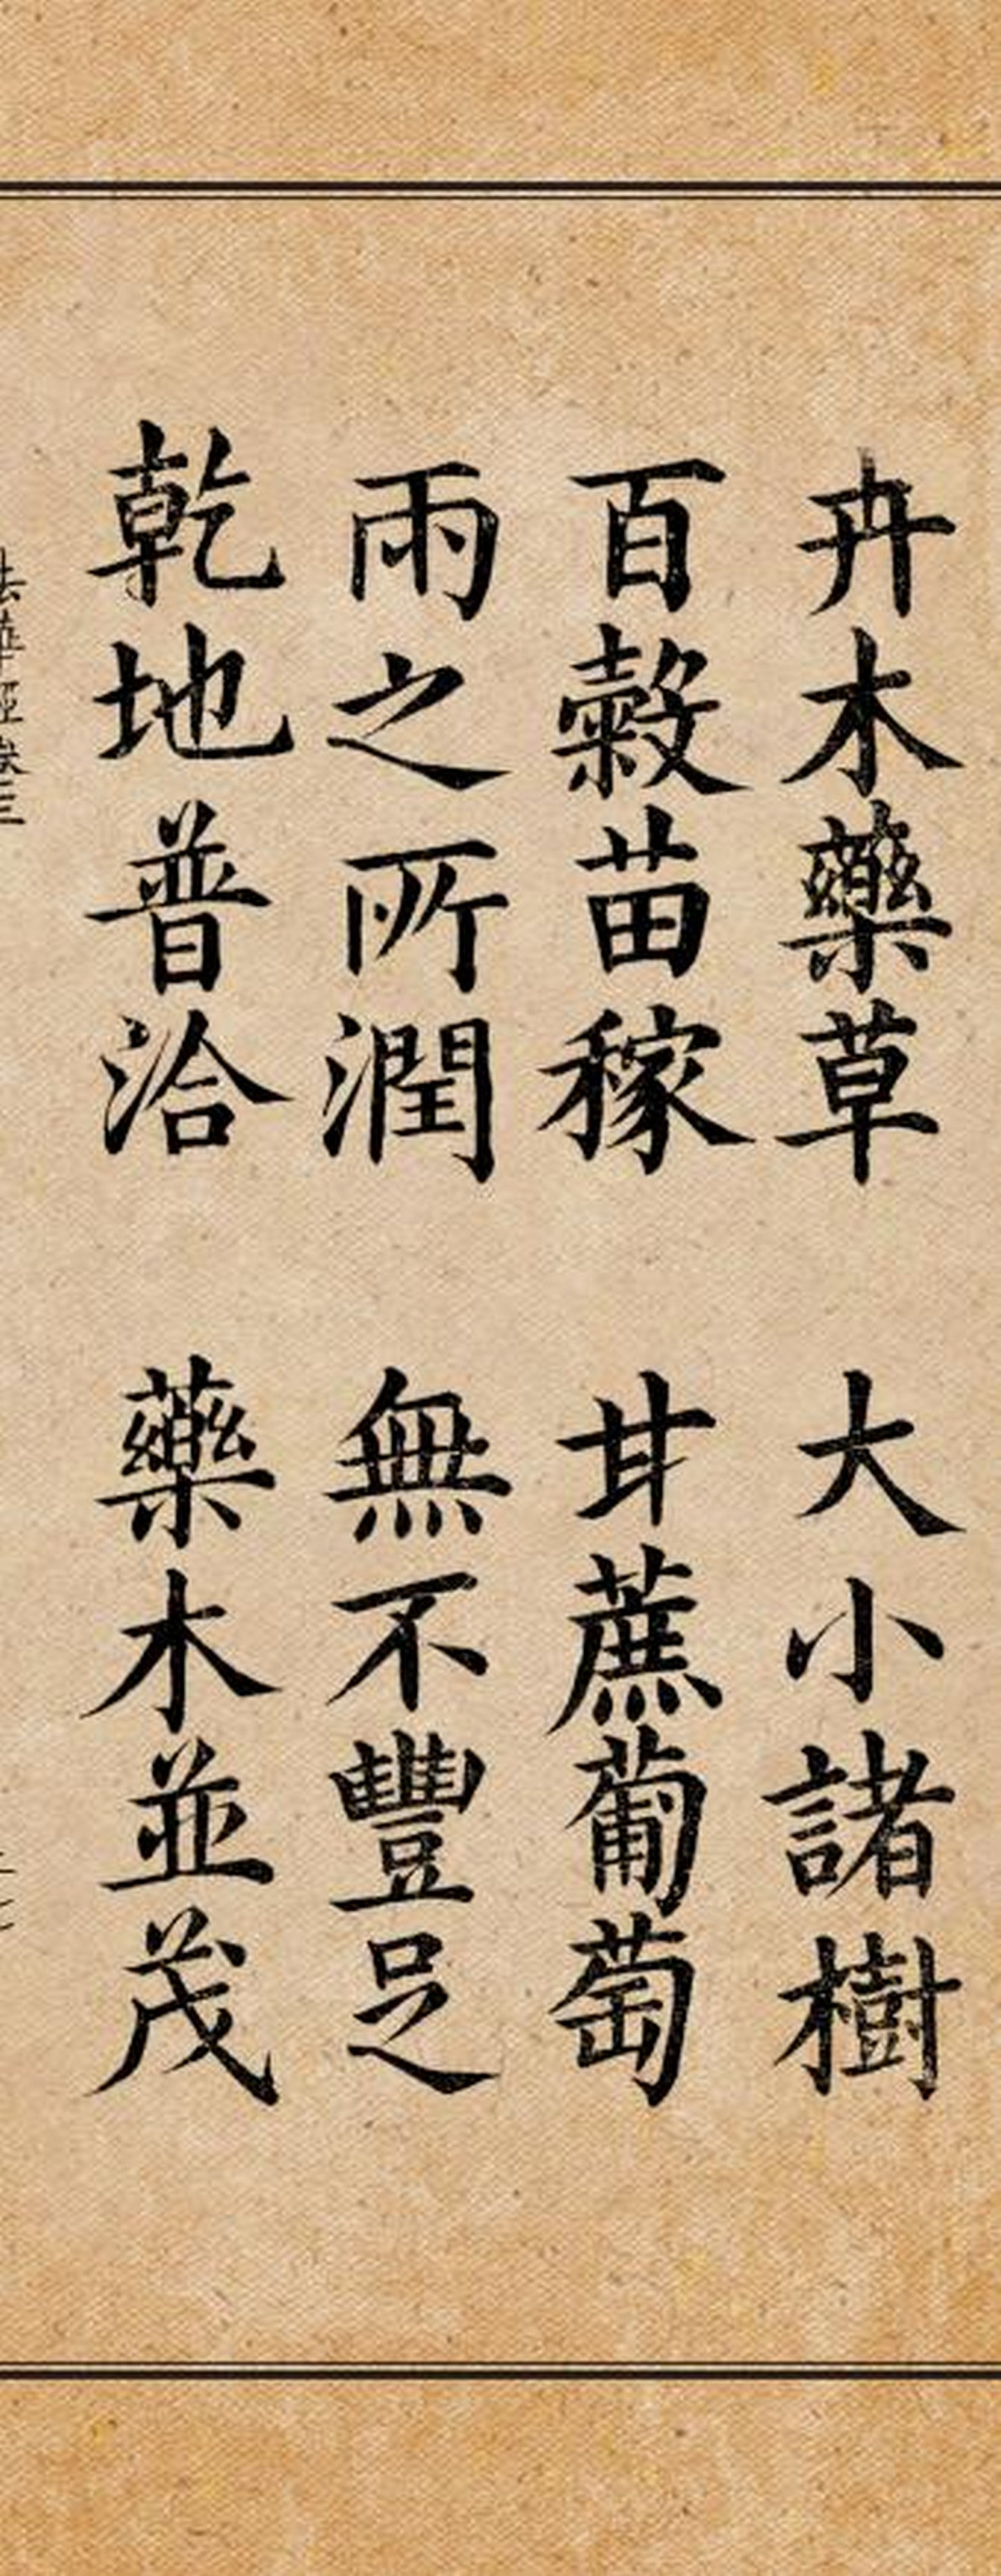 卉木藥草 大小諸樹
百穀苗稼 甘蔗葡萄
雨之所潤 無不豐足
乾地普洽 藥木並茂
法華經卷三